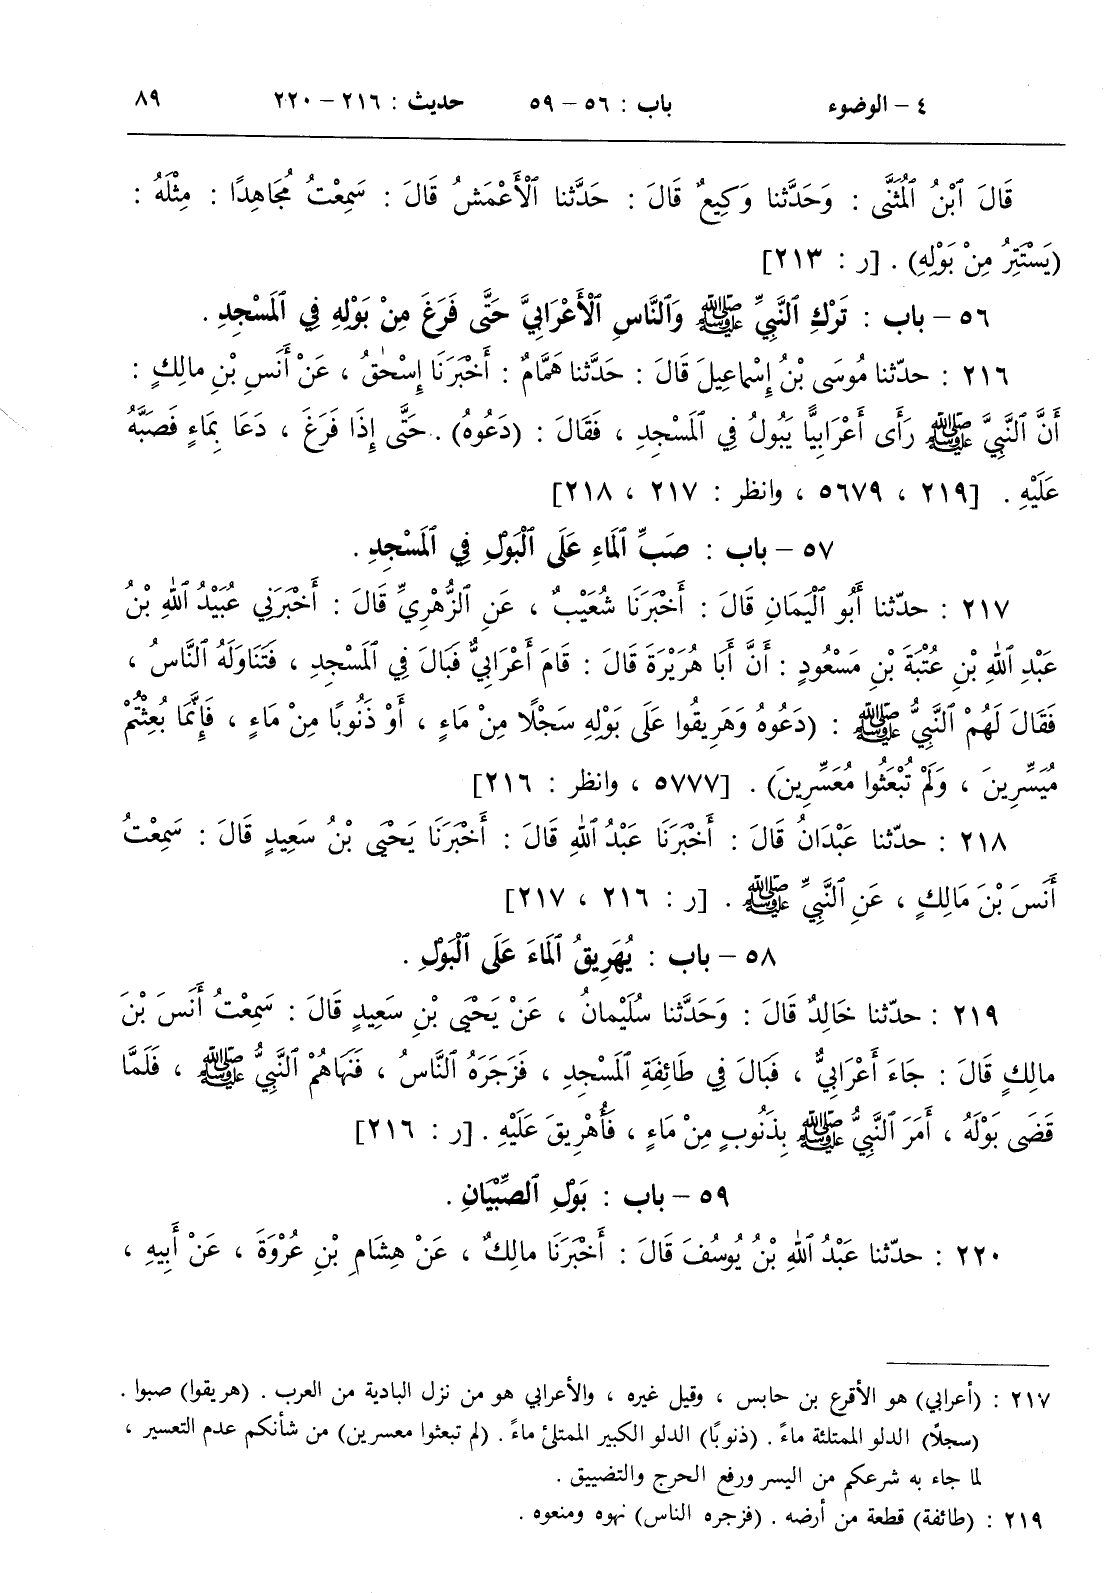 ٤ – الوضوء باب : ٥٦ – ٥٩ حديث : ٢١٦ – ٢٢٠ ٨٩
قَالَ ٱبْنُ ٱلْمُثَنَّى : وَحَدَّثنا وَكِيعٌ قَالَ : حَدَّثنا ٱلْأَعْمَشُ قَالَ : سَمِعْتُ مُجَاهِدًا : مِثْلَهُ :
(يَسْتَتِرُ مِنْ بَوْلِهِ) . [ر : ٢١٣]
٥٦ – باب : تَرْكِ ٱلنَّبِيِّ ﷺ وَٱلنَّاسِ ٱلْأَعْرَابِيَّ حَتَّى فَرَغَ مِنْ بَوْلِهِ فِي ٱلْمَسْجِدِ .
٢١٦ : حدّثنا مُوسَى بْنُ إِسْماعِيلَ قَالَ : حَدَّثنا هَمَّامٌ : أَخْبَرَنَا إِسْحٰقُ ، عَنْ أَنَسِ بْنِ مالِكٍ :
أَنَّ ٱلنَّبِيَّ ﷺ رَأَى أَعْرَابِيًّا يَبُولُ فِي ٱلْمَسْجِدِ ، فَقَالَ : (دَعُوهُ) . حَتَّى إِذَا فَرَغَ ، دَعَا بِمَاءٍ فَصَبَّهُ
عَلَيْهِ . [٢١٩ ، ٥٦٧٩ ، وانظر : ٢١٧ ، ٢١٨]
٥٧ – باب : صَبِّ ٱلْمَاءِ عَلَى ٱلْبَوْلِ فِي ٱلْمَسْجِدِ .
٢١٧ : حدّثنا أَبُو ٱلْيَمَانِ قَالَ : أَخْبَرَنَا شُعَيْبٌ ، عَنِ ٱلزُّهْرِيِّ قَالَ : أَخْبَرَنِي عُبَيْدُ ٱللهِ بْنُ
عَبْدِ ٱللهِ بْنِ عُتْبَةَ بْنِ مَسْعُودٍ : أَنَّ أَبَا هُرَيْرَةَ قَالَ : قَامَ أَعْرَابِيٌّ فَبَالَ فِي ٱلْمَسْجِدِ ، فَتَنَاوَلَهُ ٱلنَّاسُ ،
فَقَالَ لَهُمْ ٱلنَّبِيُّ ﷺ : (دَعُوهُ وَهَرِيقُوا عَلَى بَوْلِهِ سَجْلًا مِنْ مَاءٍ ، أَوْ ذَنُوبًا مِنْ مَاءٍ ، فَإِنَّمَا بُعِثْتُمْ
مُيَسِّرِينَ ، وَلَمْ تُبْعَثُوا مُعَسِّرِينَ) . [٥٧٧٧ ، وانظر : ٢١٦]
٢١٨ : حدّثنا عَبْدَانُ قَالَ : أَخْبَرَنَا عَبْدُ ٱللهِ قَالَ : أَخْبَرَنَا يَحْيَى بْنُ سَعِيدٍ قَالَ : سَمِعْتُ
أَنَسَ بْنَ مَالِكٍ ، عَنِ ٱلنَّبِيِّ ﷺ . [ر : ٢١٦ ، ٢١٧]
٥٨ – باب : يُهَرِيقُ ٱلْمَاءَ عَلَى ٱلْبَوْلِ .
٢١٩ : حدّثنا خَالِدٌ قَالَ : وَحَدَّثنا سُلَيْمانُ ، عَنْ يَحْيَى بْنِ سَعِيدٍ قَالَ : سَمِعْتُ أَنَسَ بْنَ
مالِكٍ قَالَ : جَاءَ أَعْرَابِيٌّ ، فَبَالَ فِي طَائِفَةِ ٱلْمَسْجِدِ ، فَزَجَرَهُ ٱلنَّاسُ ، فَنَهَاهُمْ ٱلنَّبِيُّ ﷺ ، فَلَمَّا
قَضَى بَوْلَهُ ، أَمَرَ ٱلنَّبِيُّ ﷺ بِذَنُوبٍ مِنْ مَاءٍ ، فَأُهْرِيقَ عَلَيْهِ . [ر : ٢١٦]
٥٩ – باب : بَوْلِ ٱلصِّبْيَانِ .
٢٢٠ : حدّثنا عَبْدُ ٱللهِ بْنُ يُوسُفَ قَالَ : أَخْبَرَنَا مالِكٌ ، عَنْ هِشَامِ بْنِ عُرْوَةَ ، عَنْ أَبِيهِ ،
٢١٧ : (أعرابي) هو الأقرع بن حابس ، وقيل غيره ، والأعرابي هو من نزل البادية من العرب . (هريقوا) صبوا .
(سجلًا) الدلو الممتلئة ماءً . (ذنوبًا) الدلو الكبير الممتلئ ماءً . (لم تبعثوا معسرين) من شأنكم عدم التعسير ،
لما جاء به شرعكم من اليسر ورفع الحرج والتضييق .
٢١٩ : (طائفة) قطعة من أرضه . (فزجره الناس) نهوه ومنعوه .